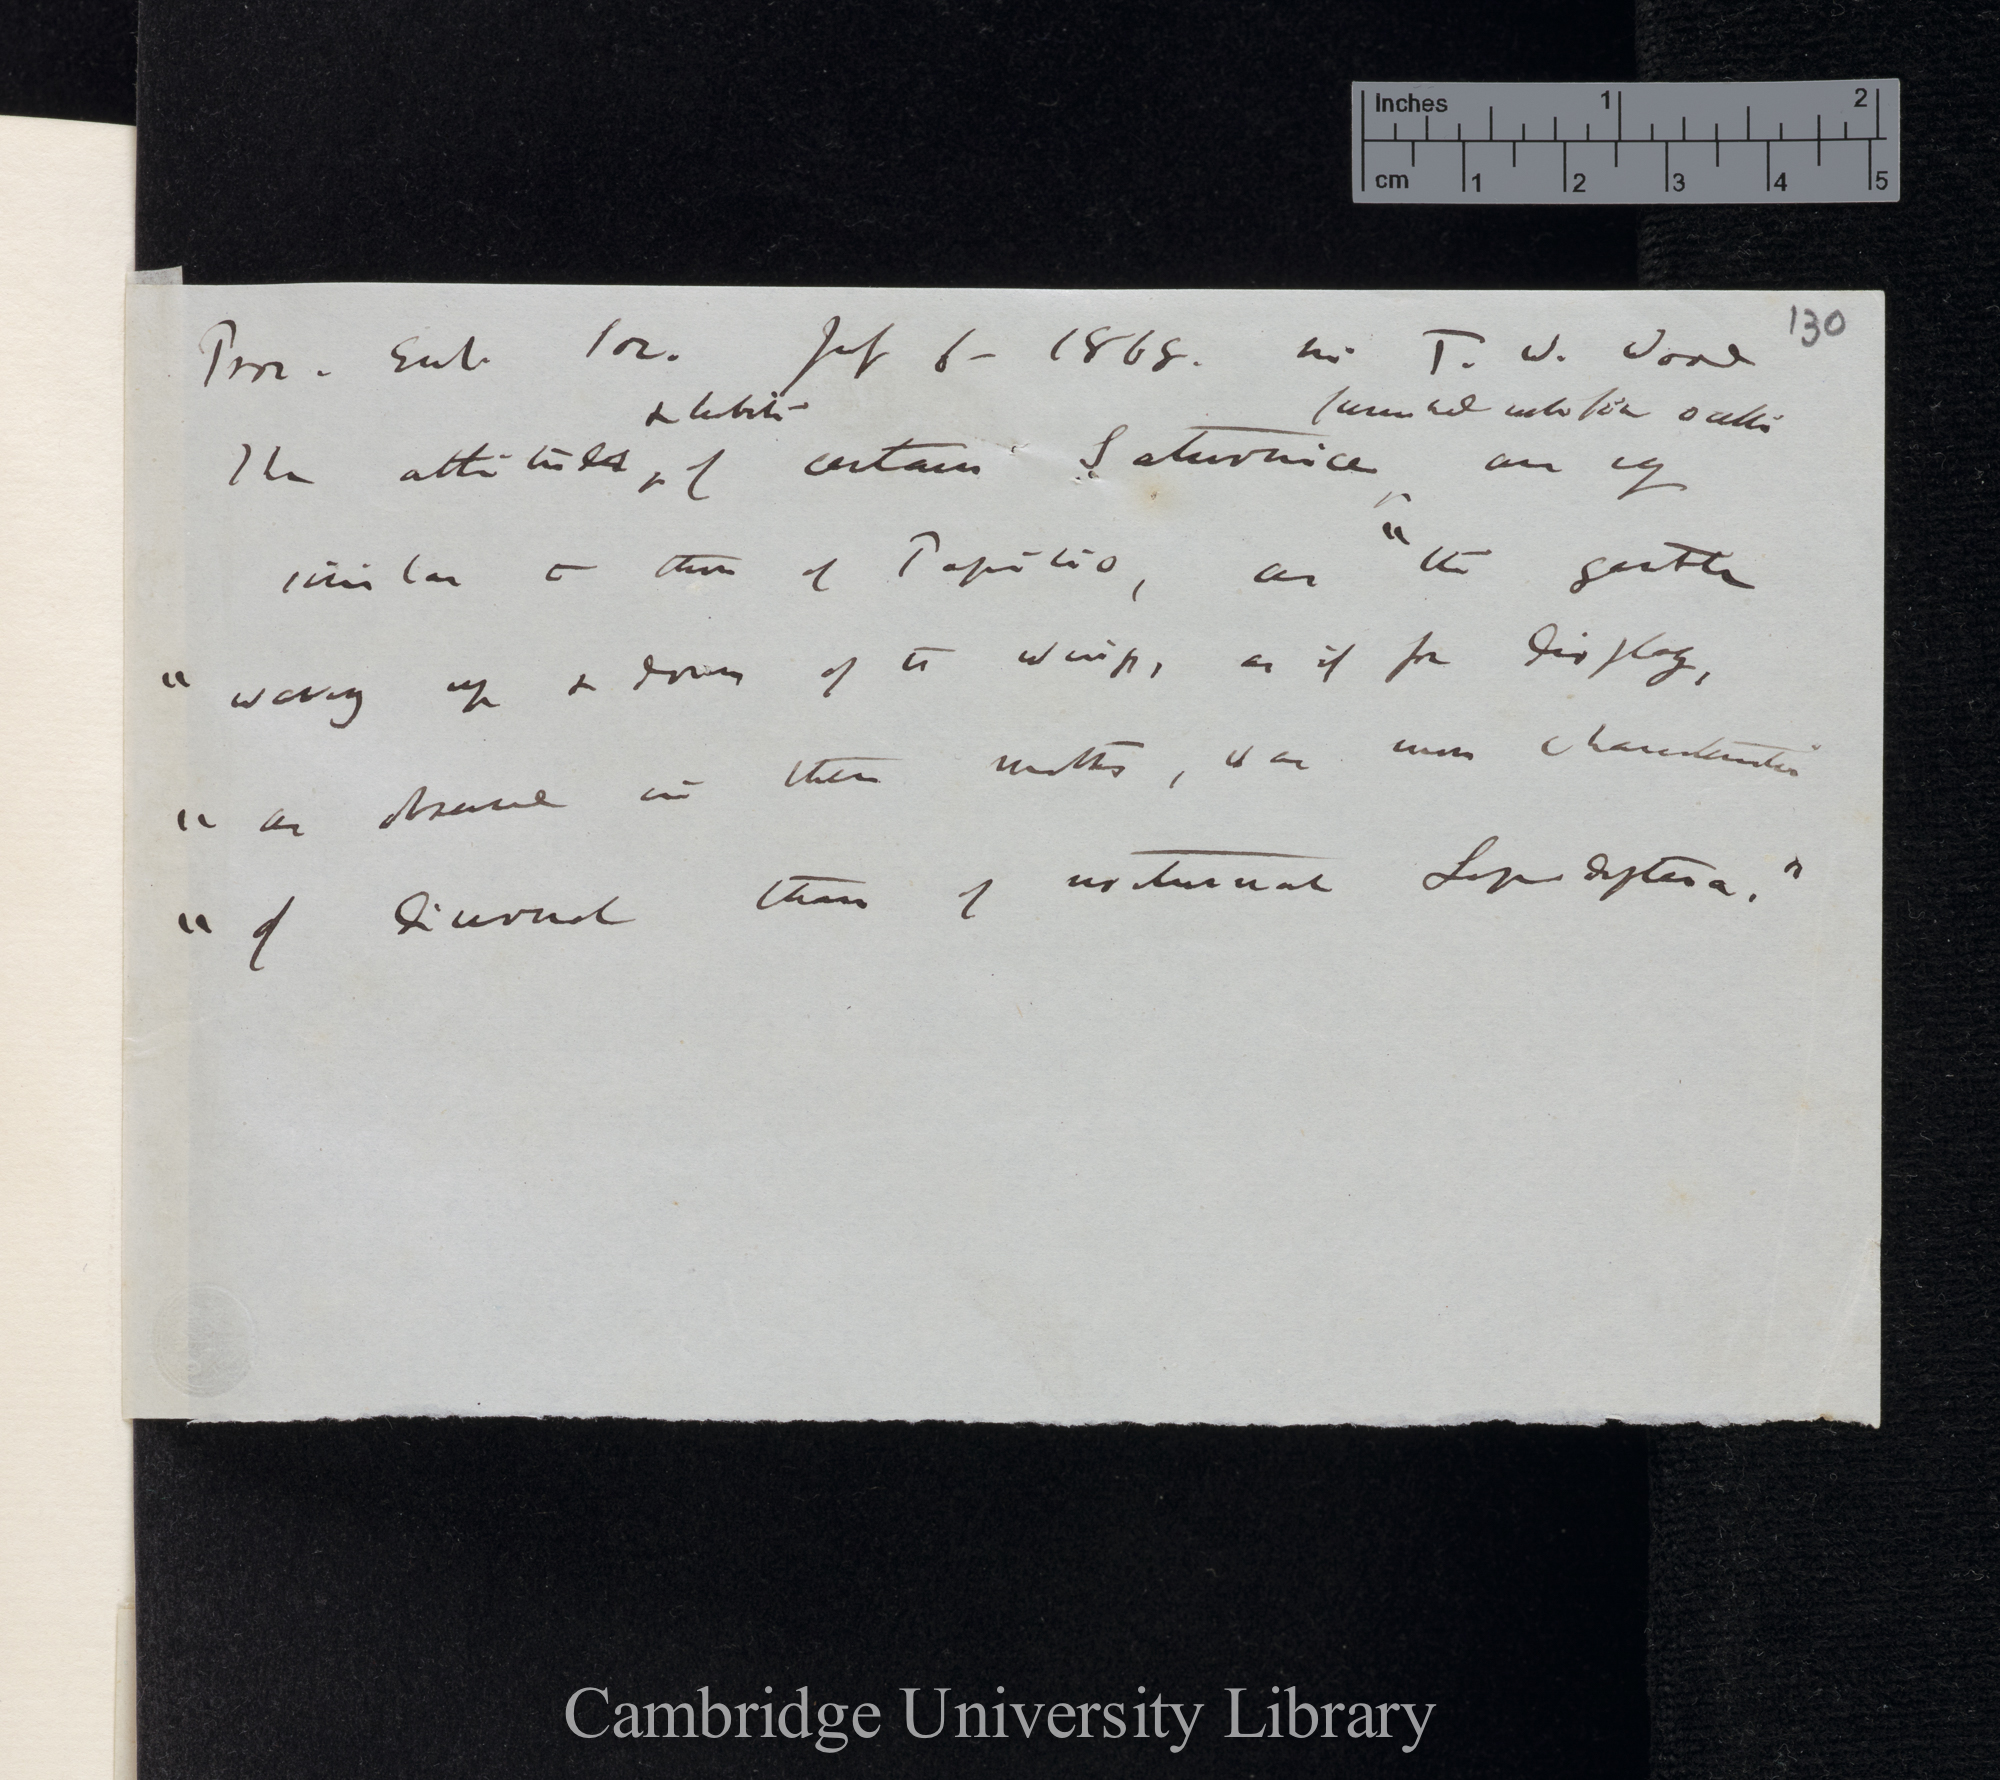 Inches 1 2
cm 1 2 3 4 5
130
Proc. Ent. Soc. July 6 – 1868. Mr T. W. Wood
& habits
with fine ocelli
The attitudes, of certain Saturniæ are
similar to those of Papilio, as "the gentle
" waving up & down of the wings, as if for display,
" as observed in these moths, was more characteristic
" of diurnal than of nocturnal Lepidoptera."
Cambridge University Library